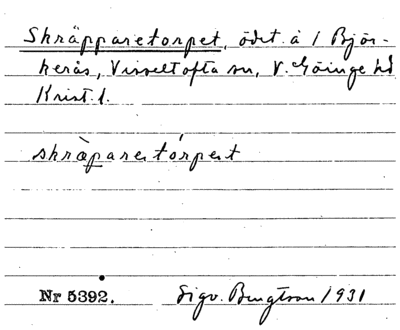 Skräpparetorpet, ödet. å 1 Björ-
kerås, Visseltofta sn, V. Göinge hd
Krist. l.
skräparetórpet
Nr 5392. Sigv. Bengtson 1931